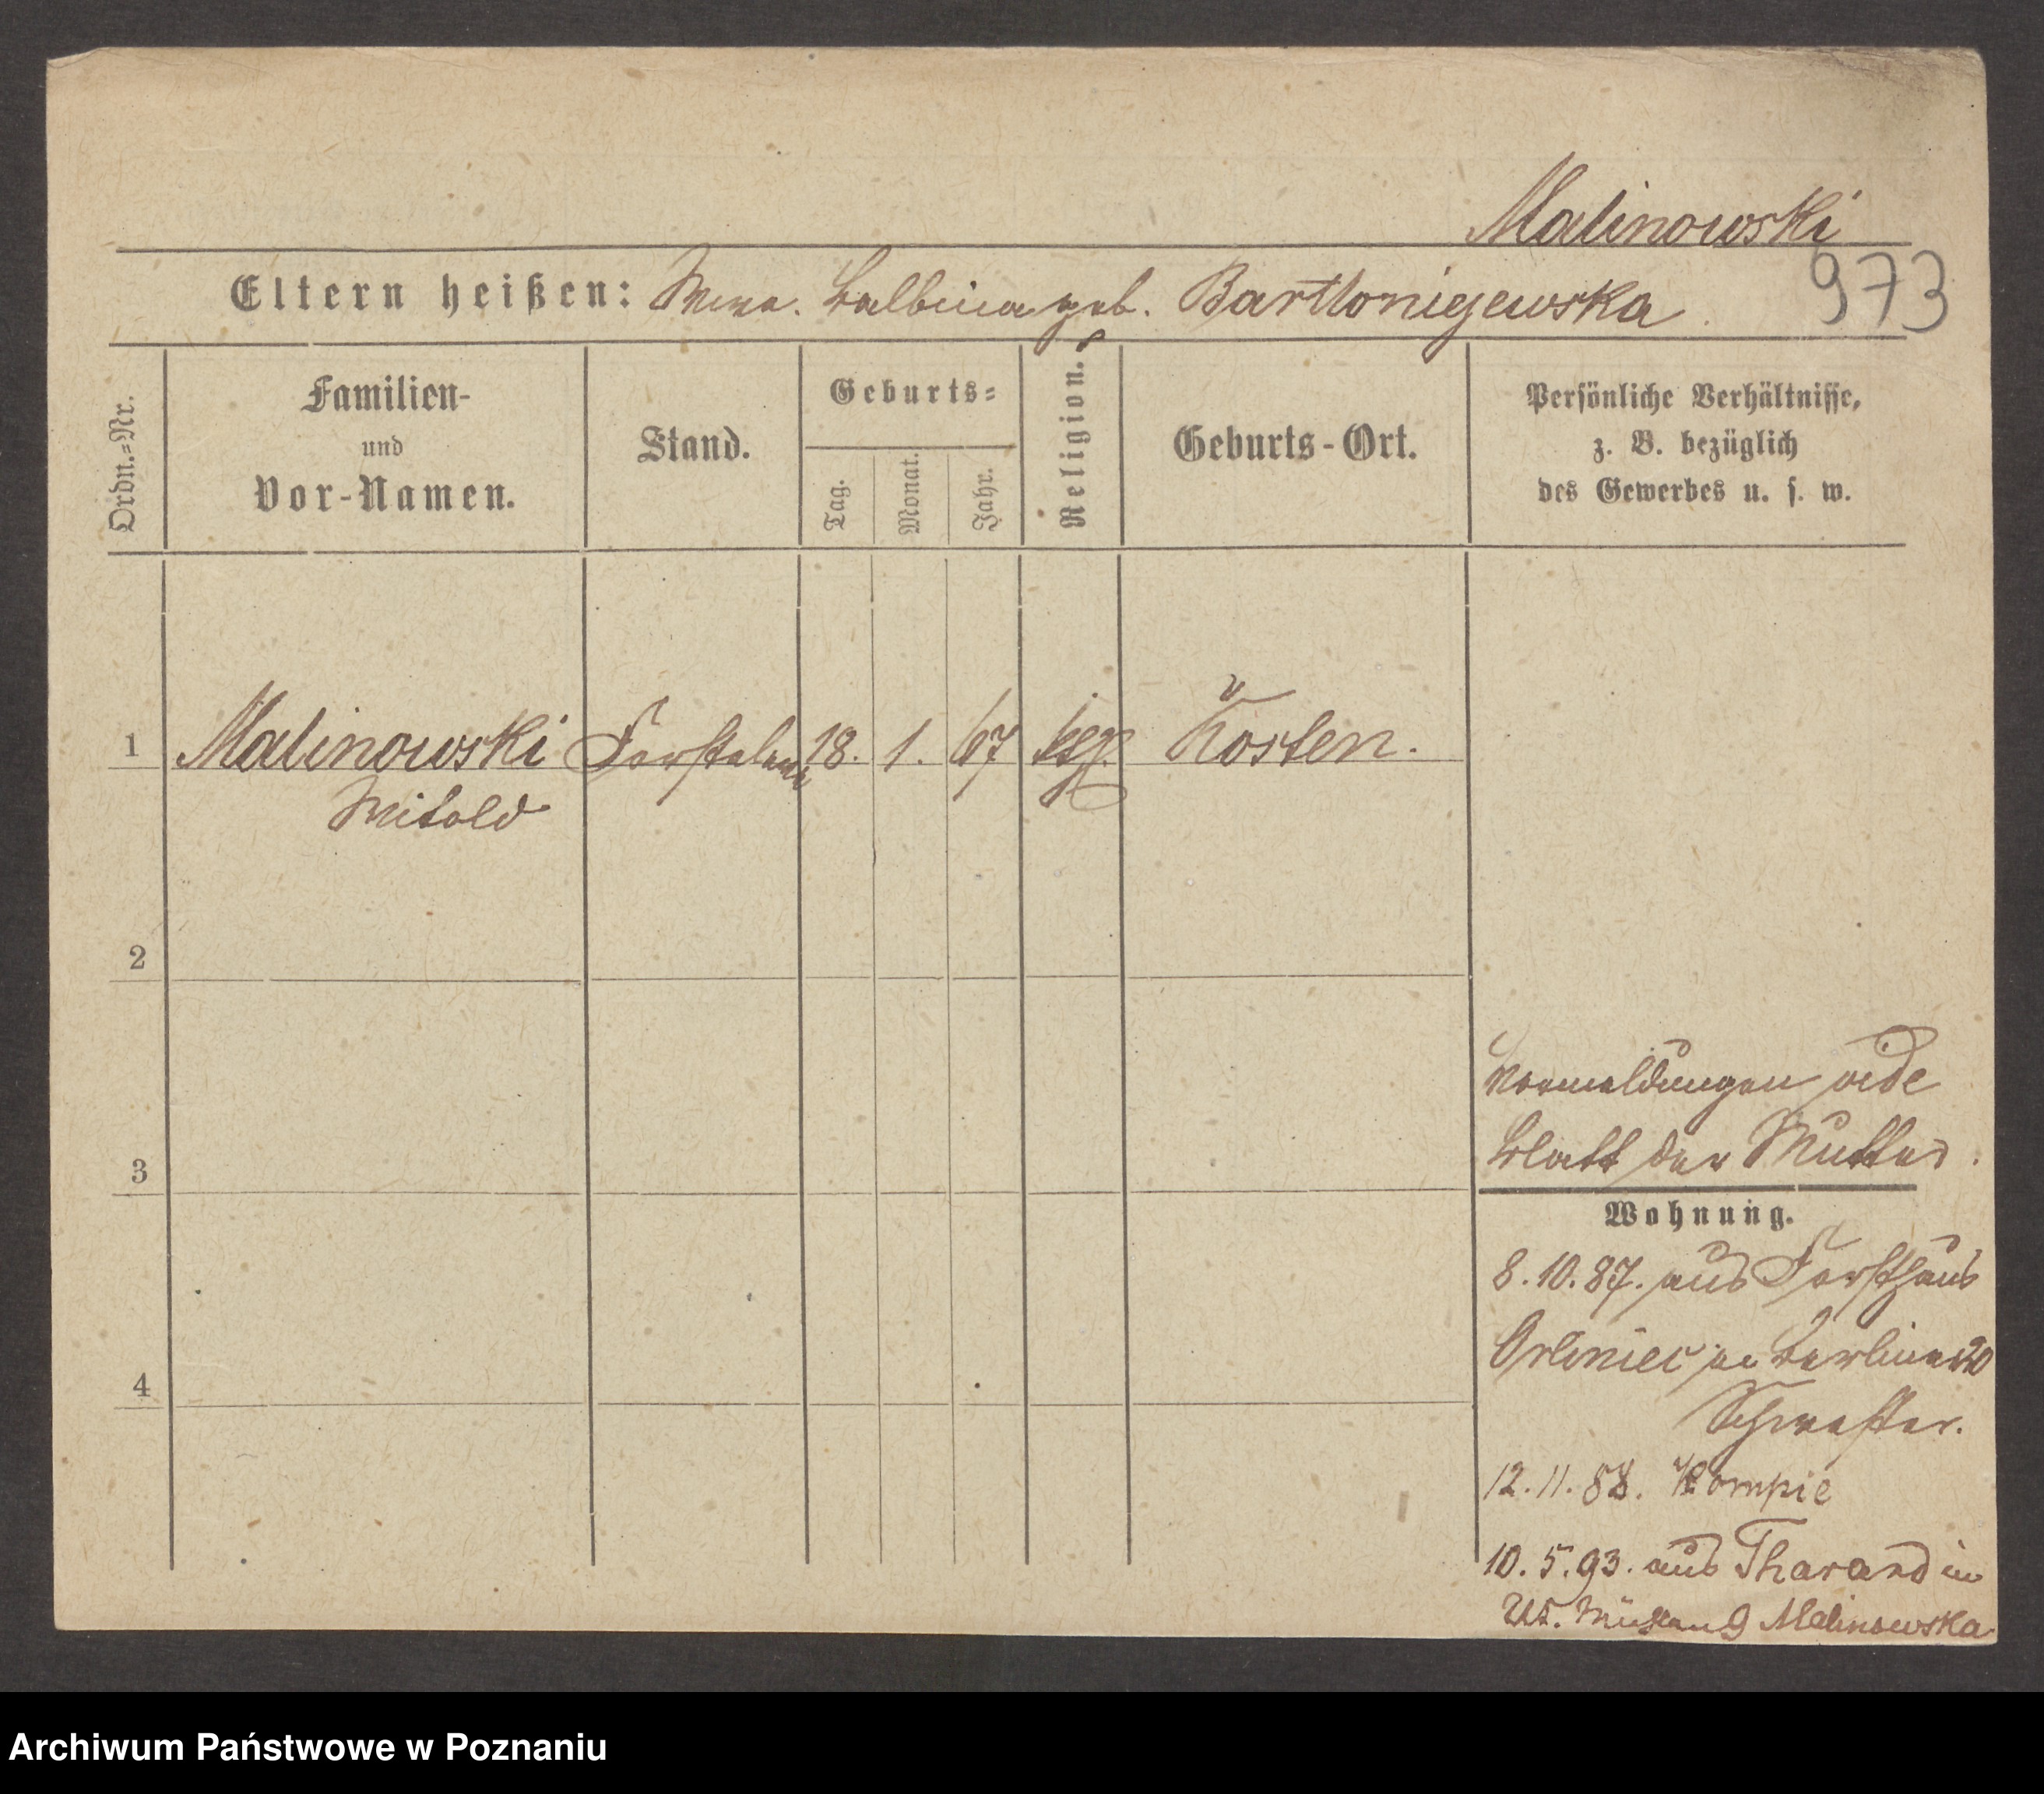 Malinowski
Eltern heißen: Wwe. Balbina geb. Bartlonigewska.
973
Ordn.=Nr.
Familien-
und
Vor-Namen.
Stand.
Geburts=
Tag.
Monat.
Jahr.
Religion.
Geburts-Ort.
Persönliche Verhältnisse,
z. B. bezüglich
des Gewerbes u. s. w.
1 Malinowski 18. 1. 67 Kosten.
Witold
2
3
4
Vormeldungen vide
Blatt der Mutter.
Wohnung.
8.10.87. aus Forsthaus
Orliniec Berliner 20
Schwester.
12.11.88. Kompie
10.5.93. aus Tharand in
9 Malinowska
Archiwum Państwowe w Poznaniu